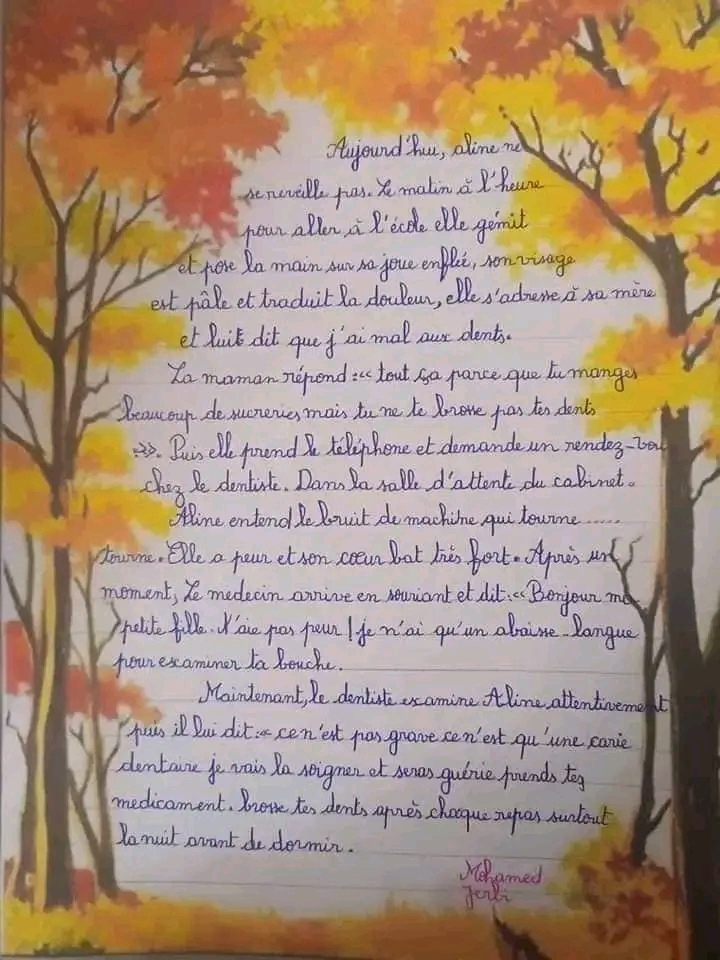 Aujourd'hui, aline ne
se reveille pas. Le matin à l'heure
pour aller à l'école elle gémit
et pose la main sur sa joue enflée, son visage
est pâle et traduit la douleur, elle s'adresse à sa mère
et luit dit que j'ai mal aux dents.
La maman répond : « tout ça parce que tu manges
beaucoup de sucreries mais tu ne te brosse pas tes dents
». Puis elle prend le téléphone et demande un rendez-vou
chez le dentiste. Dans la salle d'attente du cabinet.
Aline entend le bruit de machine qui tourne......
tourne. Elle a peur et son cœur bat très fort. Après un
moment, Le medecin arrive en souriant et dit : « Bonjour ma
petite fille. N'aie pas peur ! je n'ai qu'un abaisse-langue
pour examiner ta bouche.
Maintenant, le dentiste examine Aline attentivement
puis il lui dit : « ce n'est pas grave ce n'est qu'une carie
dentaire je vais la soigner et seras guérie prends tes
medicament. brosse tes dents après chaque repas surtout
la nuit avant de dormir.
Mohamed
Jerbi